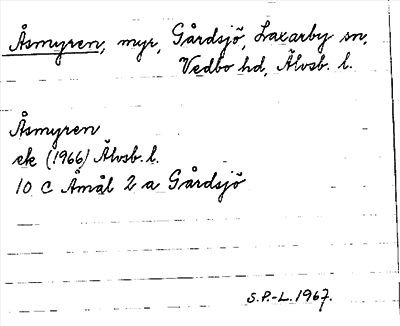 Åsmyren, myr, Gårdsjö, Laxarby sn,
Vedbo hd, Älvsb. l.
Åsmyren
ek (1966) Älvsb. l.
10 C Åmål 2 a Gårdsjö
S.P.-L. 1967.